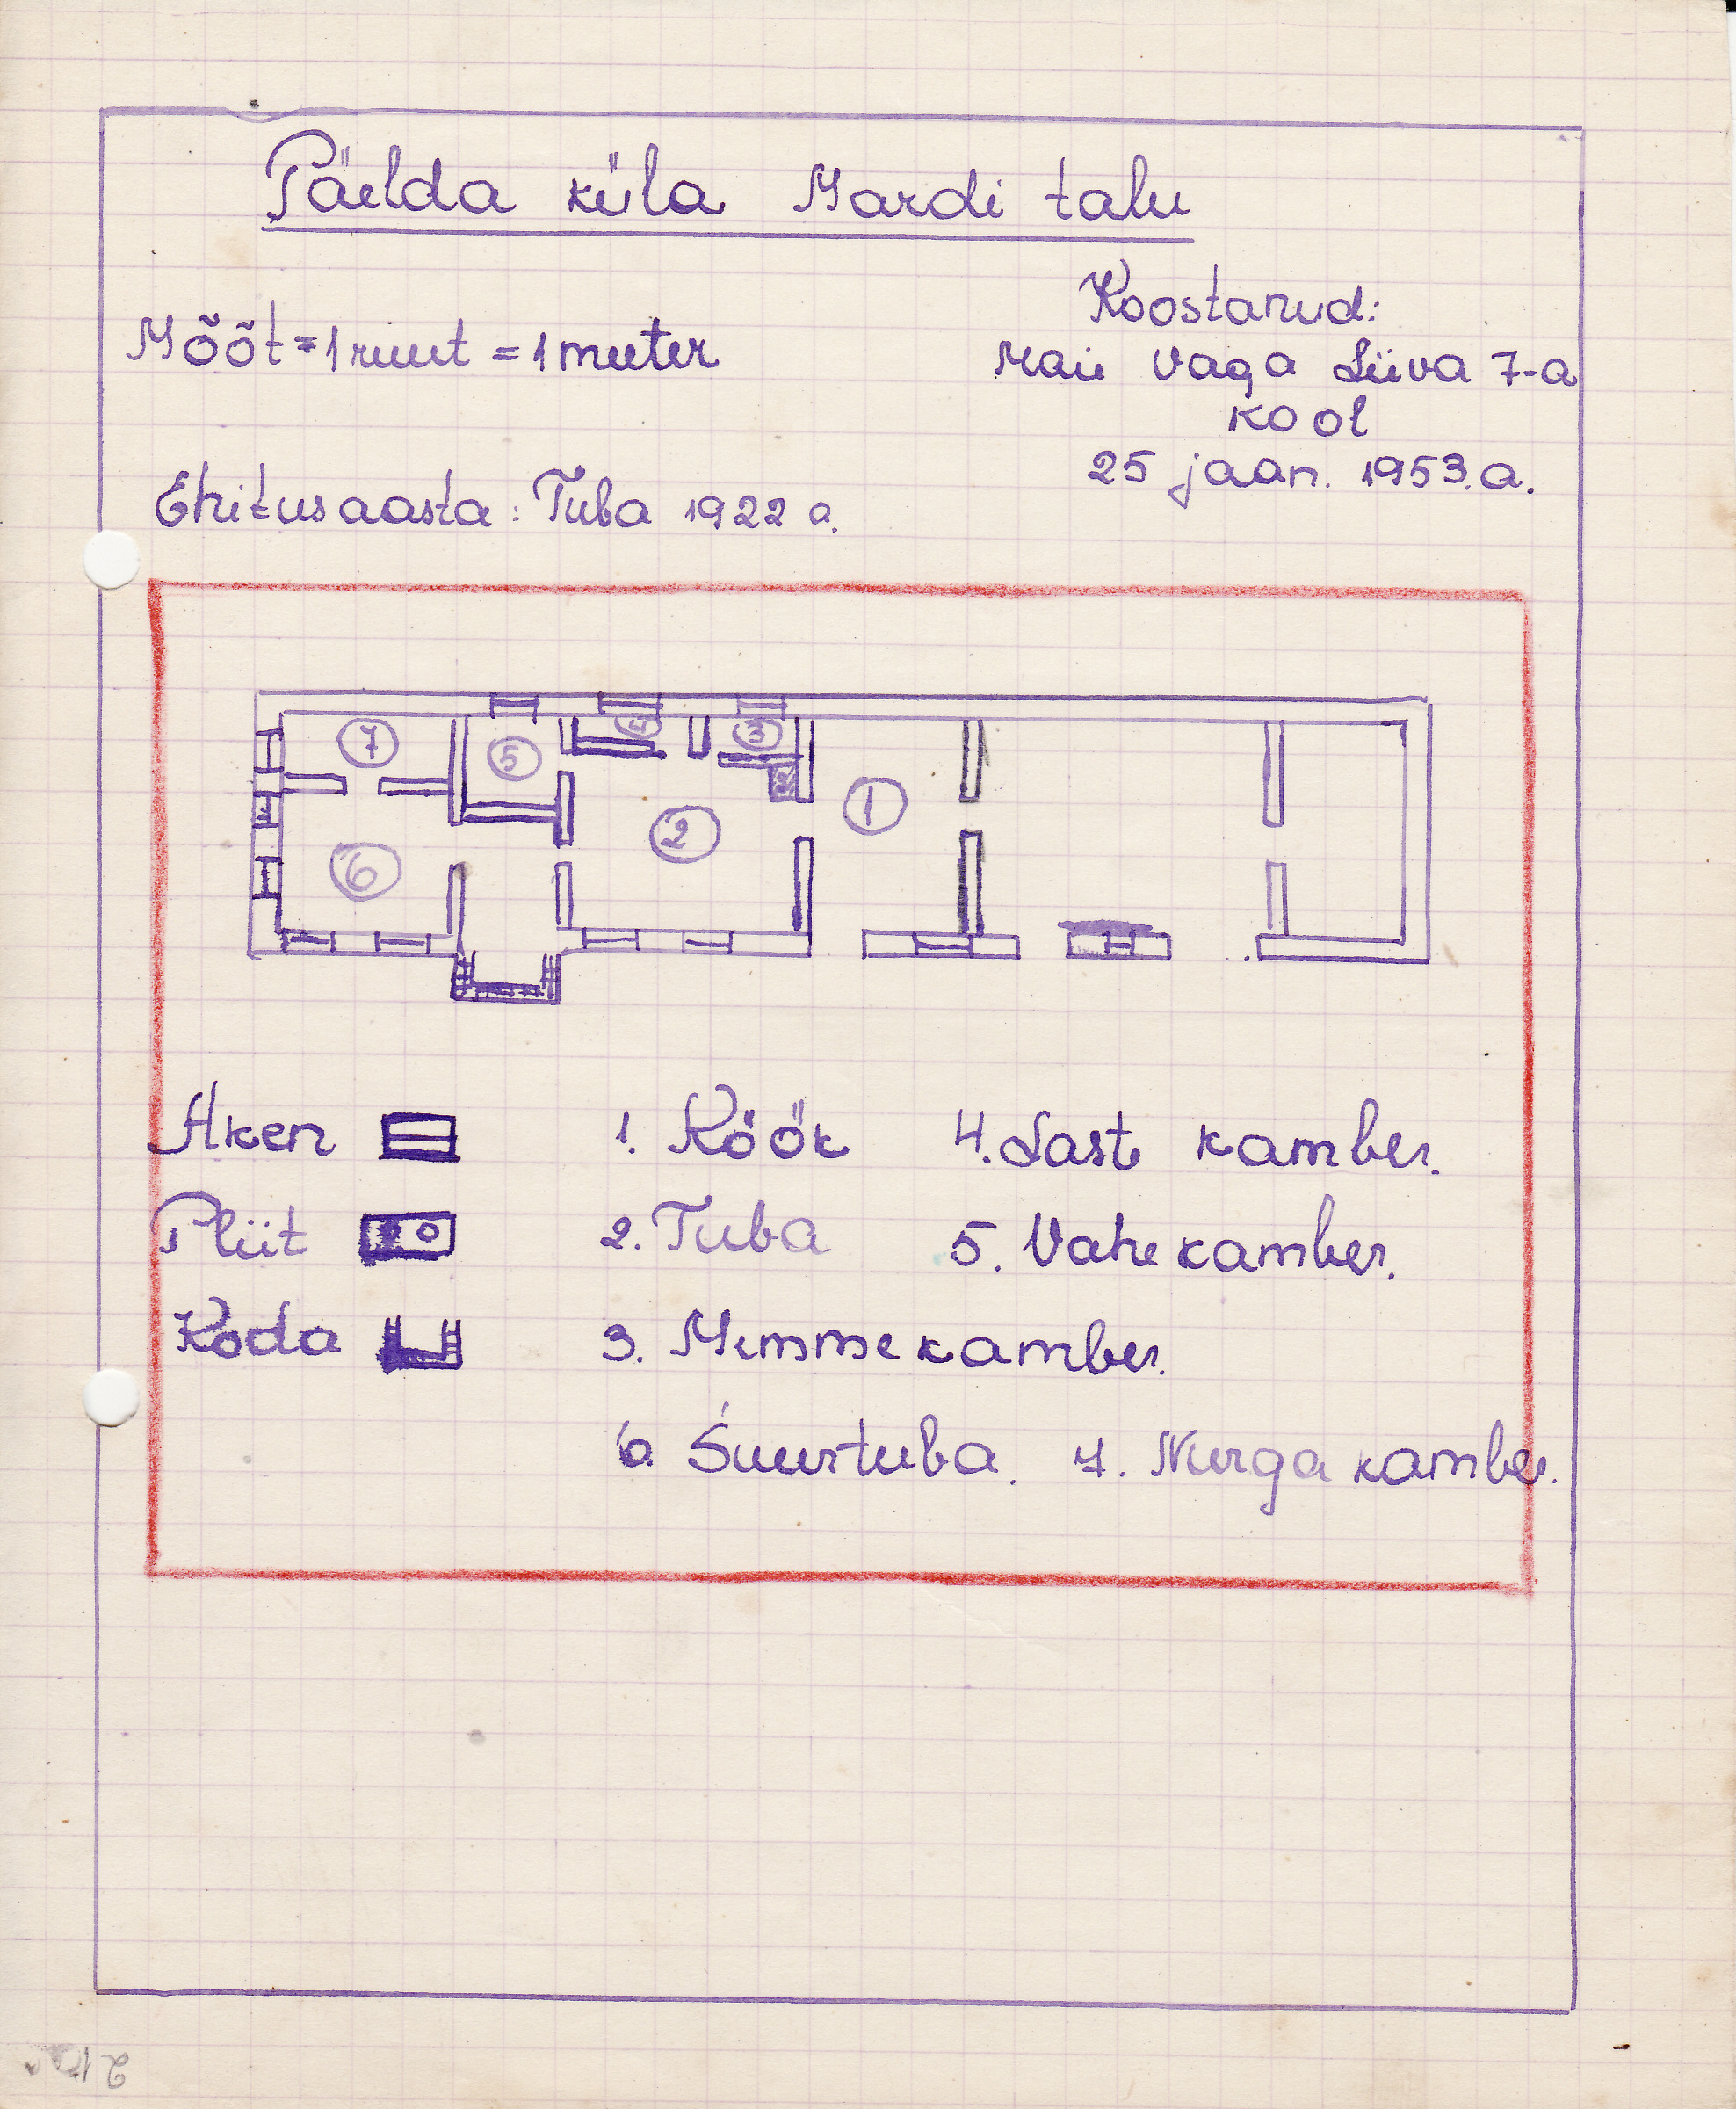 Päelda küla Mardi talu
Mõõt = 1 ruut = 1 meeter
Koostanud:
Maie Vaga Liiva 7-a
kool
25 jaan. 1953. a.
Ehitusaasta: Tuba 1922 a.
7
5
4
3
1
2
6
Aken
1. Köök
4. Laste kamber.
Pliit
2. Tuba
5. Vahe kamber.
Koda
3. Memme kamber.
6. Suurtuba. 7. Nurga kamber.